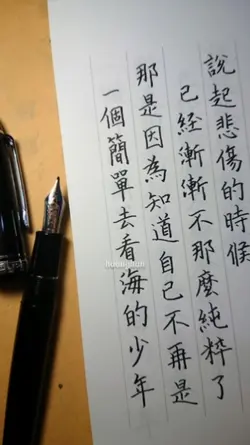 說起悲傷的時候
已經漸漸不那麼純粹了
那是因為知道自己不再是
一個簡單去看海的少年